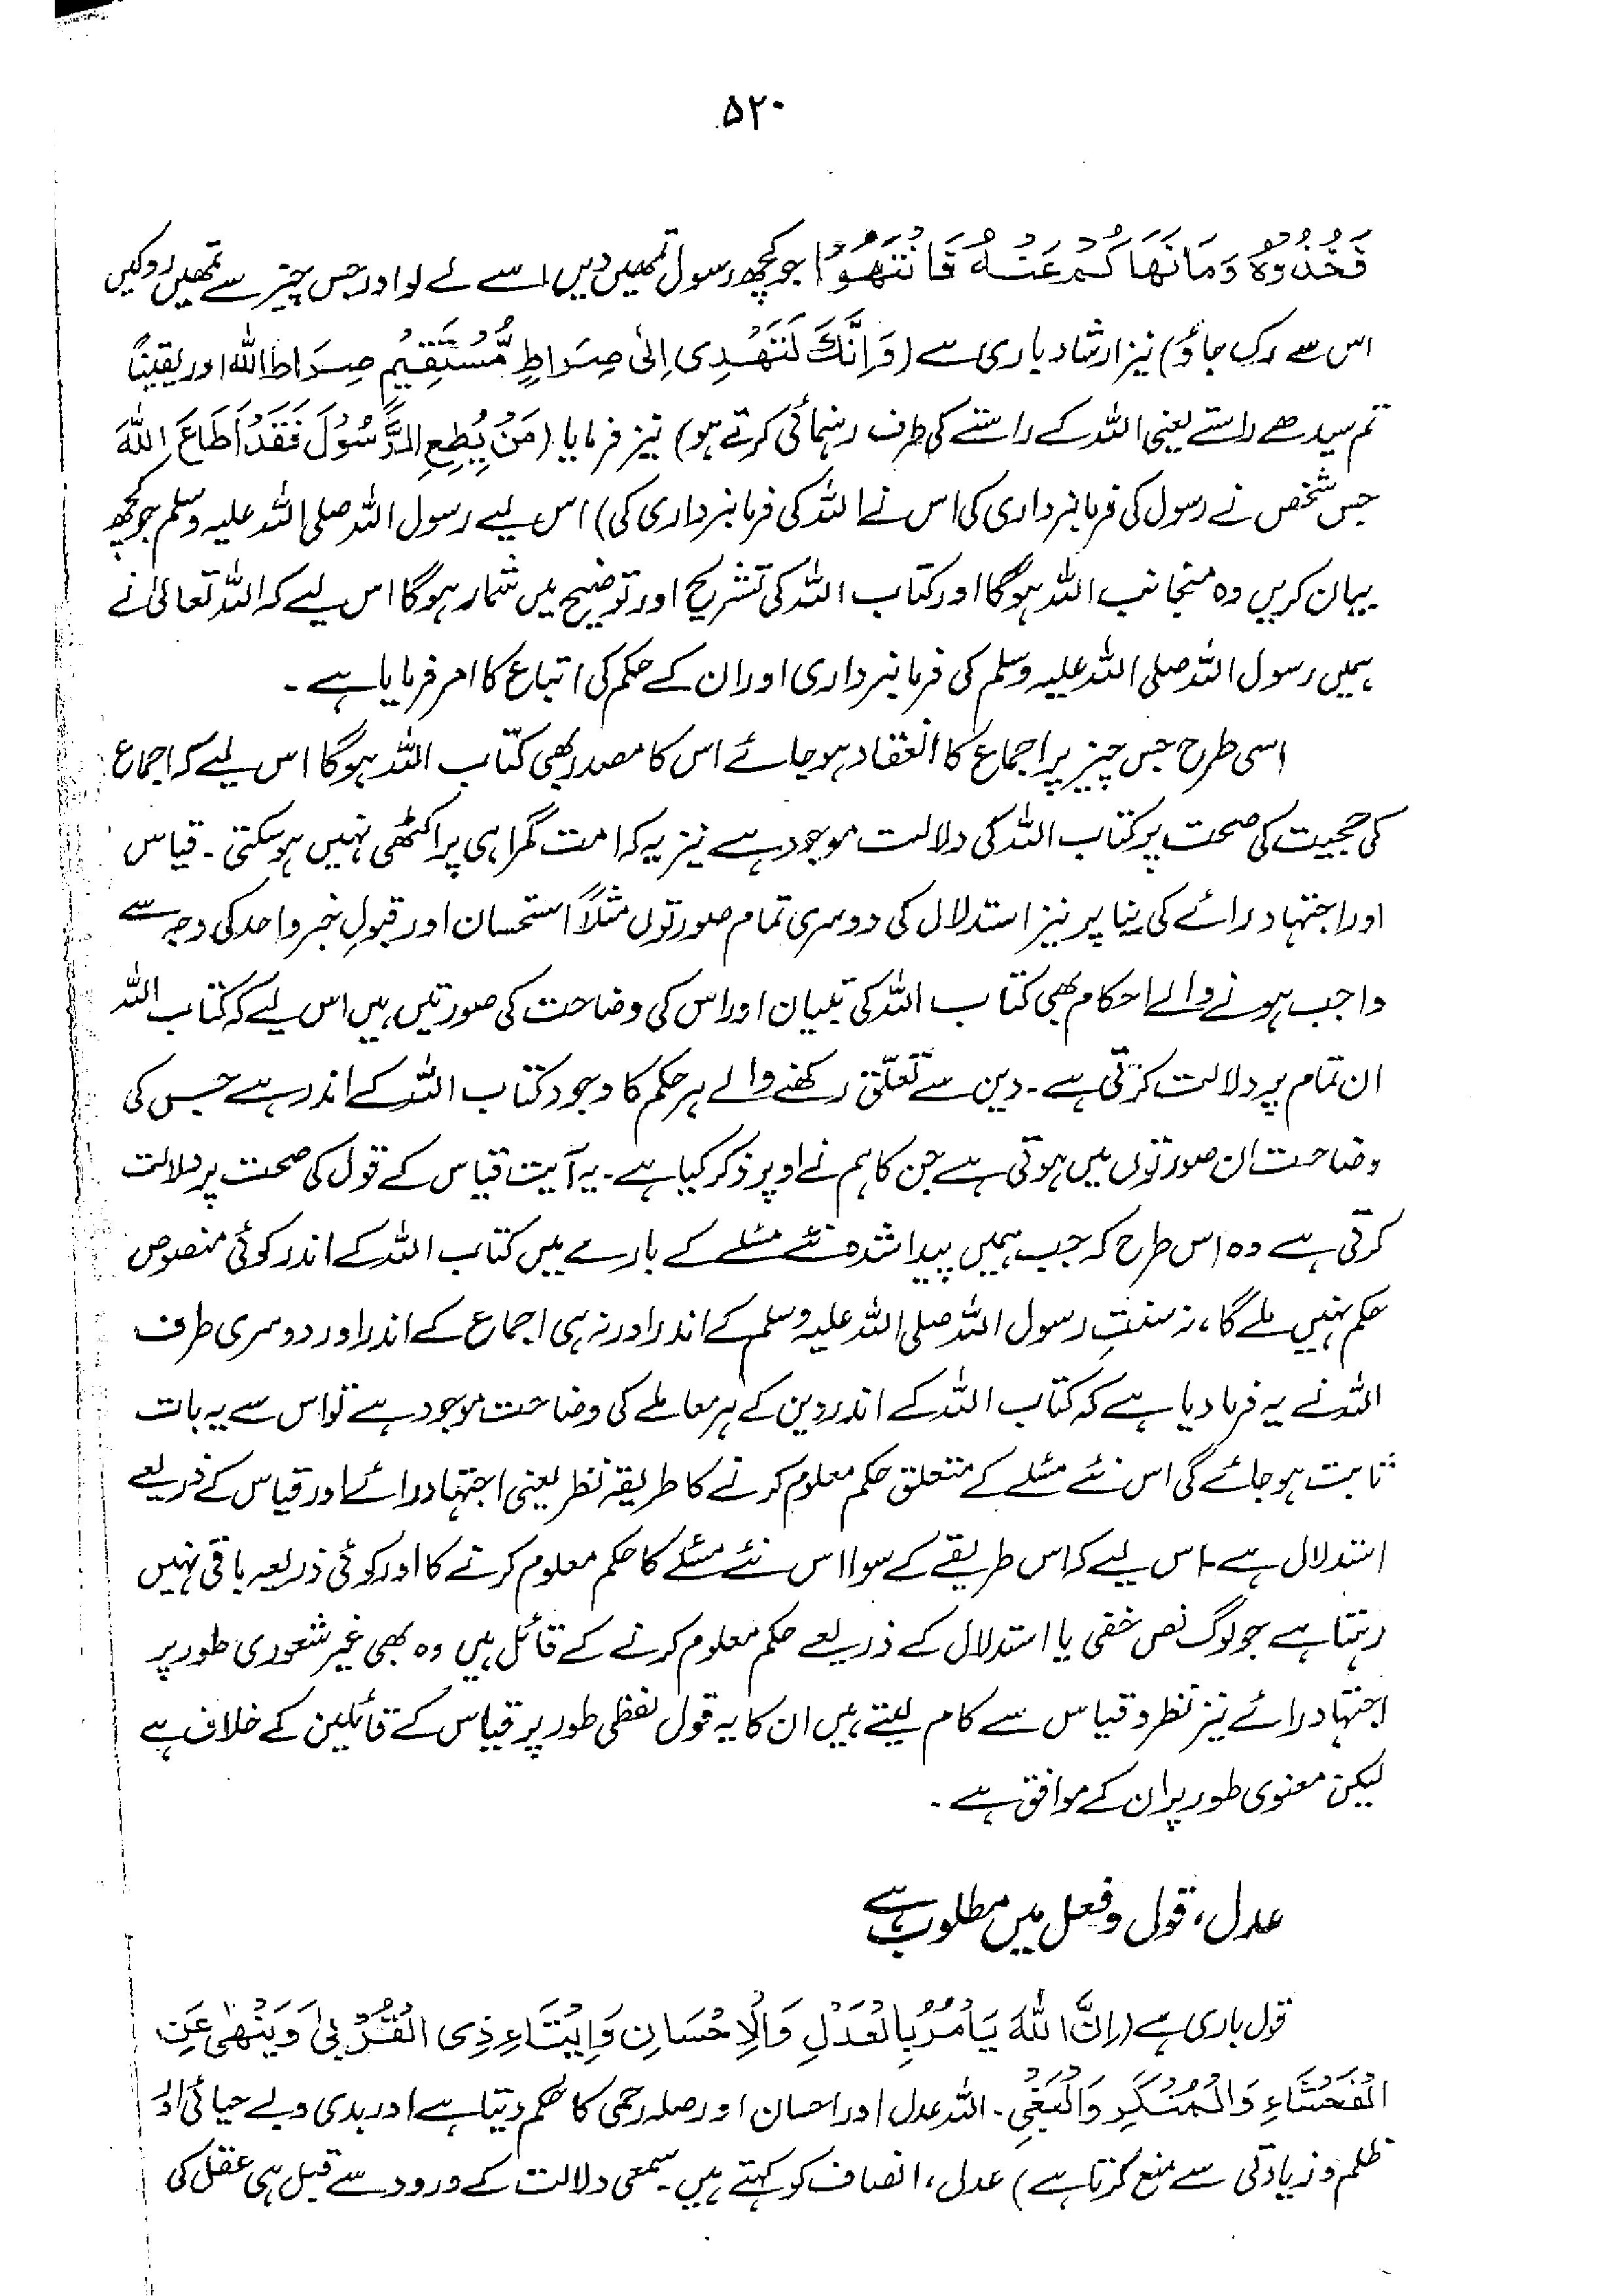 ۵۲۰
فَخُذُوْهُ وَمَا نَهَاكُمْ عَنْهُ فَانْتَهُوْا جو کچھ رسول تمھیں دیں اسے لے لو اور جس چیز سے تمھیں روکیں
اس سے رک جاؤ) نیز ارشاد باری سے (وَاِنَّكَ لَتَهْدِی اِلیٰ صِرَاطٍ مُّسْتَقِیْمٍ صِرَاطِ اللهِ اور یقیناً
تم سیدھے راستے یعنی اللہ کے راستے کی طرف رہنمائی کرتے ہو) نیز فرمایا (مَنْ یُطِعِ الرَّسُوْلَ فَقَدْ اَطَاعَ اللهَ
جس شخص نے رسول کی فرمانبرداری کی اس نے اللہ کی فرمانبرداری کی) اس لیے رسول اللہ صلی اللہ علیہ وسلم جو کچھ
بیان کریں وہ منجانب اللہ ہوگا اور کتاب اللہ کی تشریح اور توضیح میں شمار ہوگا اس لیے کہ اللہ تعالیٰ نے
ہمیں رسول اللہ صلی اللہ علیہ وسلم کی فرمانبرداری اور ان کے حکم کی اتباع کا امر فرمایا ہے۔
اسی طرح جس چیز پر اجماع کا انعقاد ہو جائے اس کا مصدر بھی کتاب اللہ ہوگا اس لیے کہ اجماع
کی حجیت کی صحت پر کتاب اللہ کی دلالت موجود ہے نیز یہ کہ امت گمراہی پر اکٹھی نہیں ہو سکتی۔ قیاس
اور اجتہاد رائے کی بنا پر نیز استدلال کی دوسری تمام صورتوں مثلاً استحسان اور قبولِ خبر واحد کی وجہ سے
واجب ہونے والے احکام بھی کتاب اللہ کی تبیان اور اس کی وضاحت کی صورتیں ہیں اس لیے کہ کتاب اللہ
ان تمام پر دلالت کرتی ہے۔ دین سے تعلّق رکھنے والے ہر حکم کا وجود کتاب اللہ کے اندر ہے جس کی
وضاحت ان صورتوں میں ہوتی ہے جن کا ہم نے اوپر ذکر کیا ہے۔ یہ آیت قیاس کے قول کی صحت پر دلالت
کرتی ہے وہ اس طرح کہ جب ہمیں پیدا شدہ نئے مسئلے کے بارے میں کتاب اللہ کے اندر کوئی منصوص
حکم نہیں ملے گا، نہ سنتِ رسول اللہ صلی اللہ علیہ وسلم کے اندر اور نہ ہی اجماع کے اندر اور دوسری طرف
اللہ نے یہ فرما دیا ہے کہ کتاب اللہ کے اندر دین کے ہر معاملے کی وضاحت موجود ہے تو اس سے یہ بات
ثابت ہو جائے گی اس نئے مسئلے کے متعلق حکم معلوم کرنے کا طریقہ نظر یعنی اجتہاد رائے اور قیاس کے ذریعے
استدلال ہے۔ اس لیے کہ اس طریقے کے سوا اس نئے مسئلے کا حکم معلوم کرنے کا اور کوئی ذریعہ باقی نہیں
رہتا ہے جو لوگ نص خفی یا استدلال کے ذریعے حکم معلوم کرنے کے قائل ہیں وہ بھی غیر شعوری طور پر
اجتہاد رائے نیز نظر و قیاس سے کام لیتے ہیں ان کا یہ قول لفظی طور پر قیاس کے قائلین کے خلاف ہے
لیکن معنوی طور پر ان کے موافق ہے۔
عدل، قول و فعل میں مطلوب ہے
قول باری ہے (اِنَّ اللهَ یَأْمُرُ بِالْعَدْلِ وَالْاِحْسَانِ وَاِیْتَاءِ ذِی الْقُرْبیٰ وَیَنْهٰی عَنِ
الْفَحْشَاءِ وَالْمُنْكَرِ وَالْبَغْیِ۔ اللہ عدل اور احسان اور صلہ رحمی کا حکم دیتا ہے اور بدی و بے حیائی اور
ظلم و زیادتی سے منع کرتا ہے) عدل، انصاف کو کہتے ہیں۔ سمعی دلالت کے ورود سے قبل ہی عقل کی